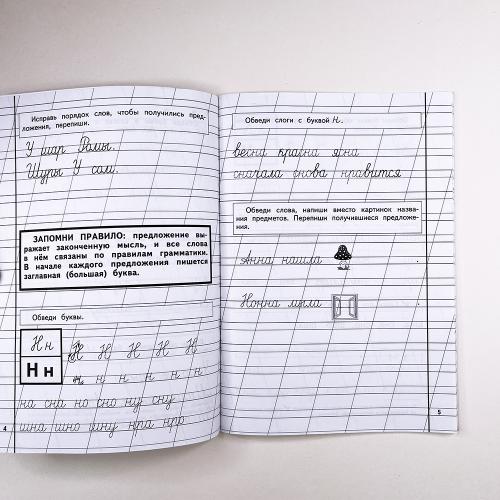 Исправь порядок слов, чтобы получились пред-
ложения, перепиши.
У шар Ромы.
Шуры У сом.
ЗАПОМНИ ПРАВИЛО: предложение вы-
ражает законченную мысль, и все слова
в нём связаны по правилам грамматики.
В начале каждого предложения пишется
заглавная (большая) буква.
Обведи буквы.
Н н
Н Н Н Н Н
Н н
н н н н н н
на сна но сно ну сну
шна шно шну нра нро
4
Обведи слоги с буквой Н.
весна красна ясна
сначала снова нравится
Обведи слова, напиши вместо картинок назва-
ния предметов. Перепиши получившиеся предложе-
ния.
Анна нашла
Нонна мыла
5